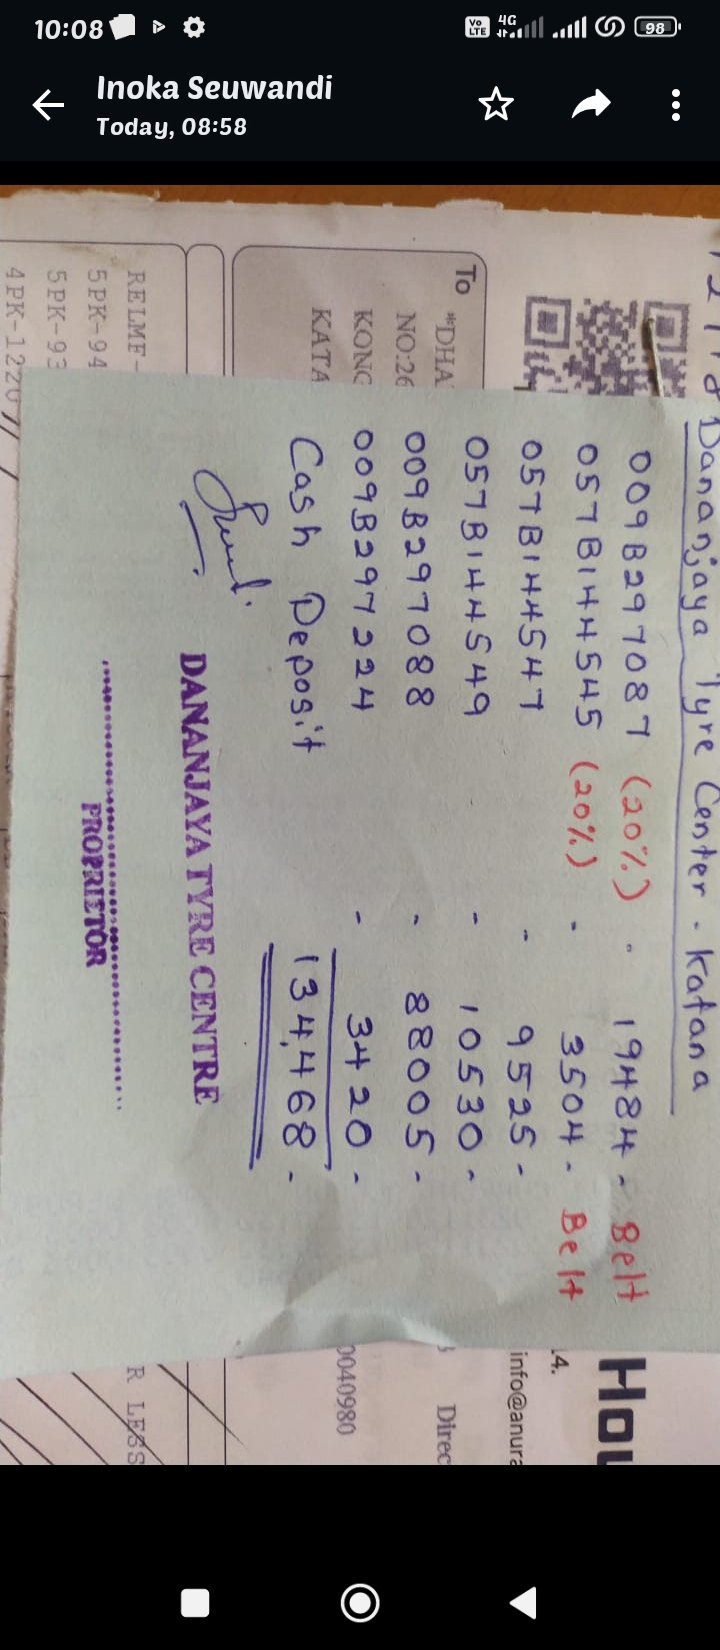 10:08
Vo LTE 4G 98
Inoka Seuwandi
Today, 08:58
Dananjaya Tyre Center - Katana
009B297087 (20%) - 19484 - Belt
057B144545 (20%) - 3504 - Belt
057B144547 - 9525 -
057B144549 - 10530 -
009B297088 - 88005 -
009B297224 - 3420 -
Cash Deposit 134,468 -
DANANJAYA TYRE CENTRE
PROPRIETOR
To
"DHA
NO:26
KONG
KATA
RELMF-
5PK-94
5PK-93
4PK-1220
Hou
.4.
info@anura
Direc
0040980
R LESS